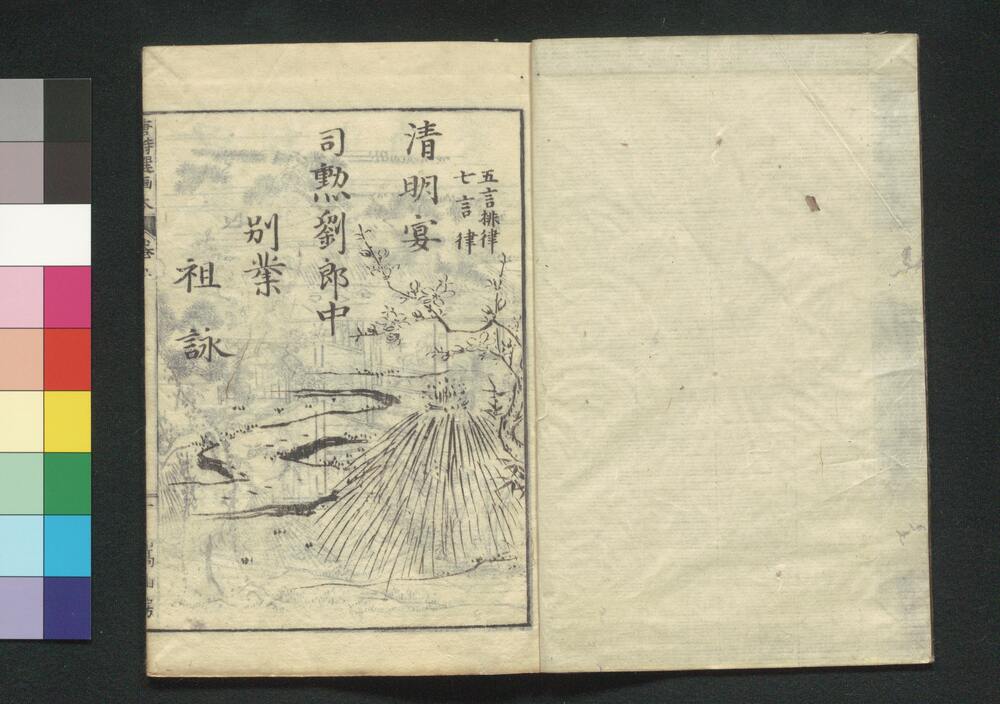 五言排律
七言律
清明宴
司勲劉郎中
別業
祖詠
唐詩選画本
嵩山房